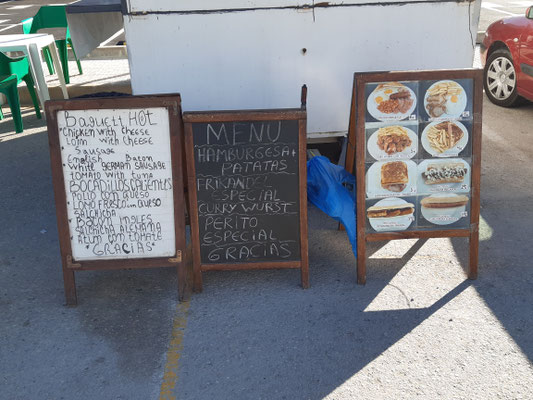 Baguett HOT
Chicken with cheese
Loim with cheese
Sausage
English Baton
White GERMAN SAUSAGE
TOMATO with tuna
BOCADILLOS CALIENTES
POLLO COM QUESO
LOMO FRESCO COM QUESO
SALCHICHA
Bacon INGLES
SALCHICHA ALEMANA
ATUM COM TOMATE
GRACIAS
MENU
HAMBURGESA+
PATATAS
FRIKANDEL
ESPECIAL
CURRY WURST
PERITO
ESPECIAL
GRACIAS